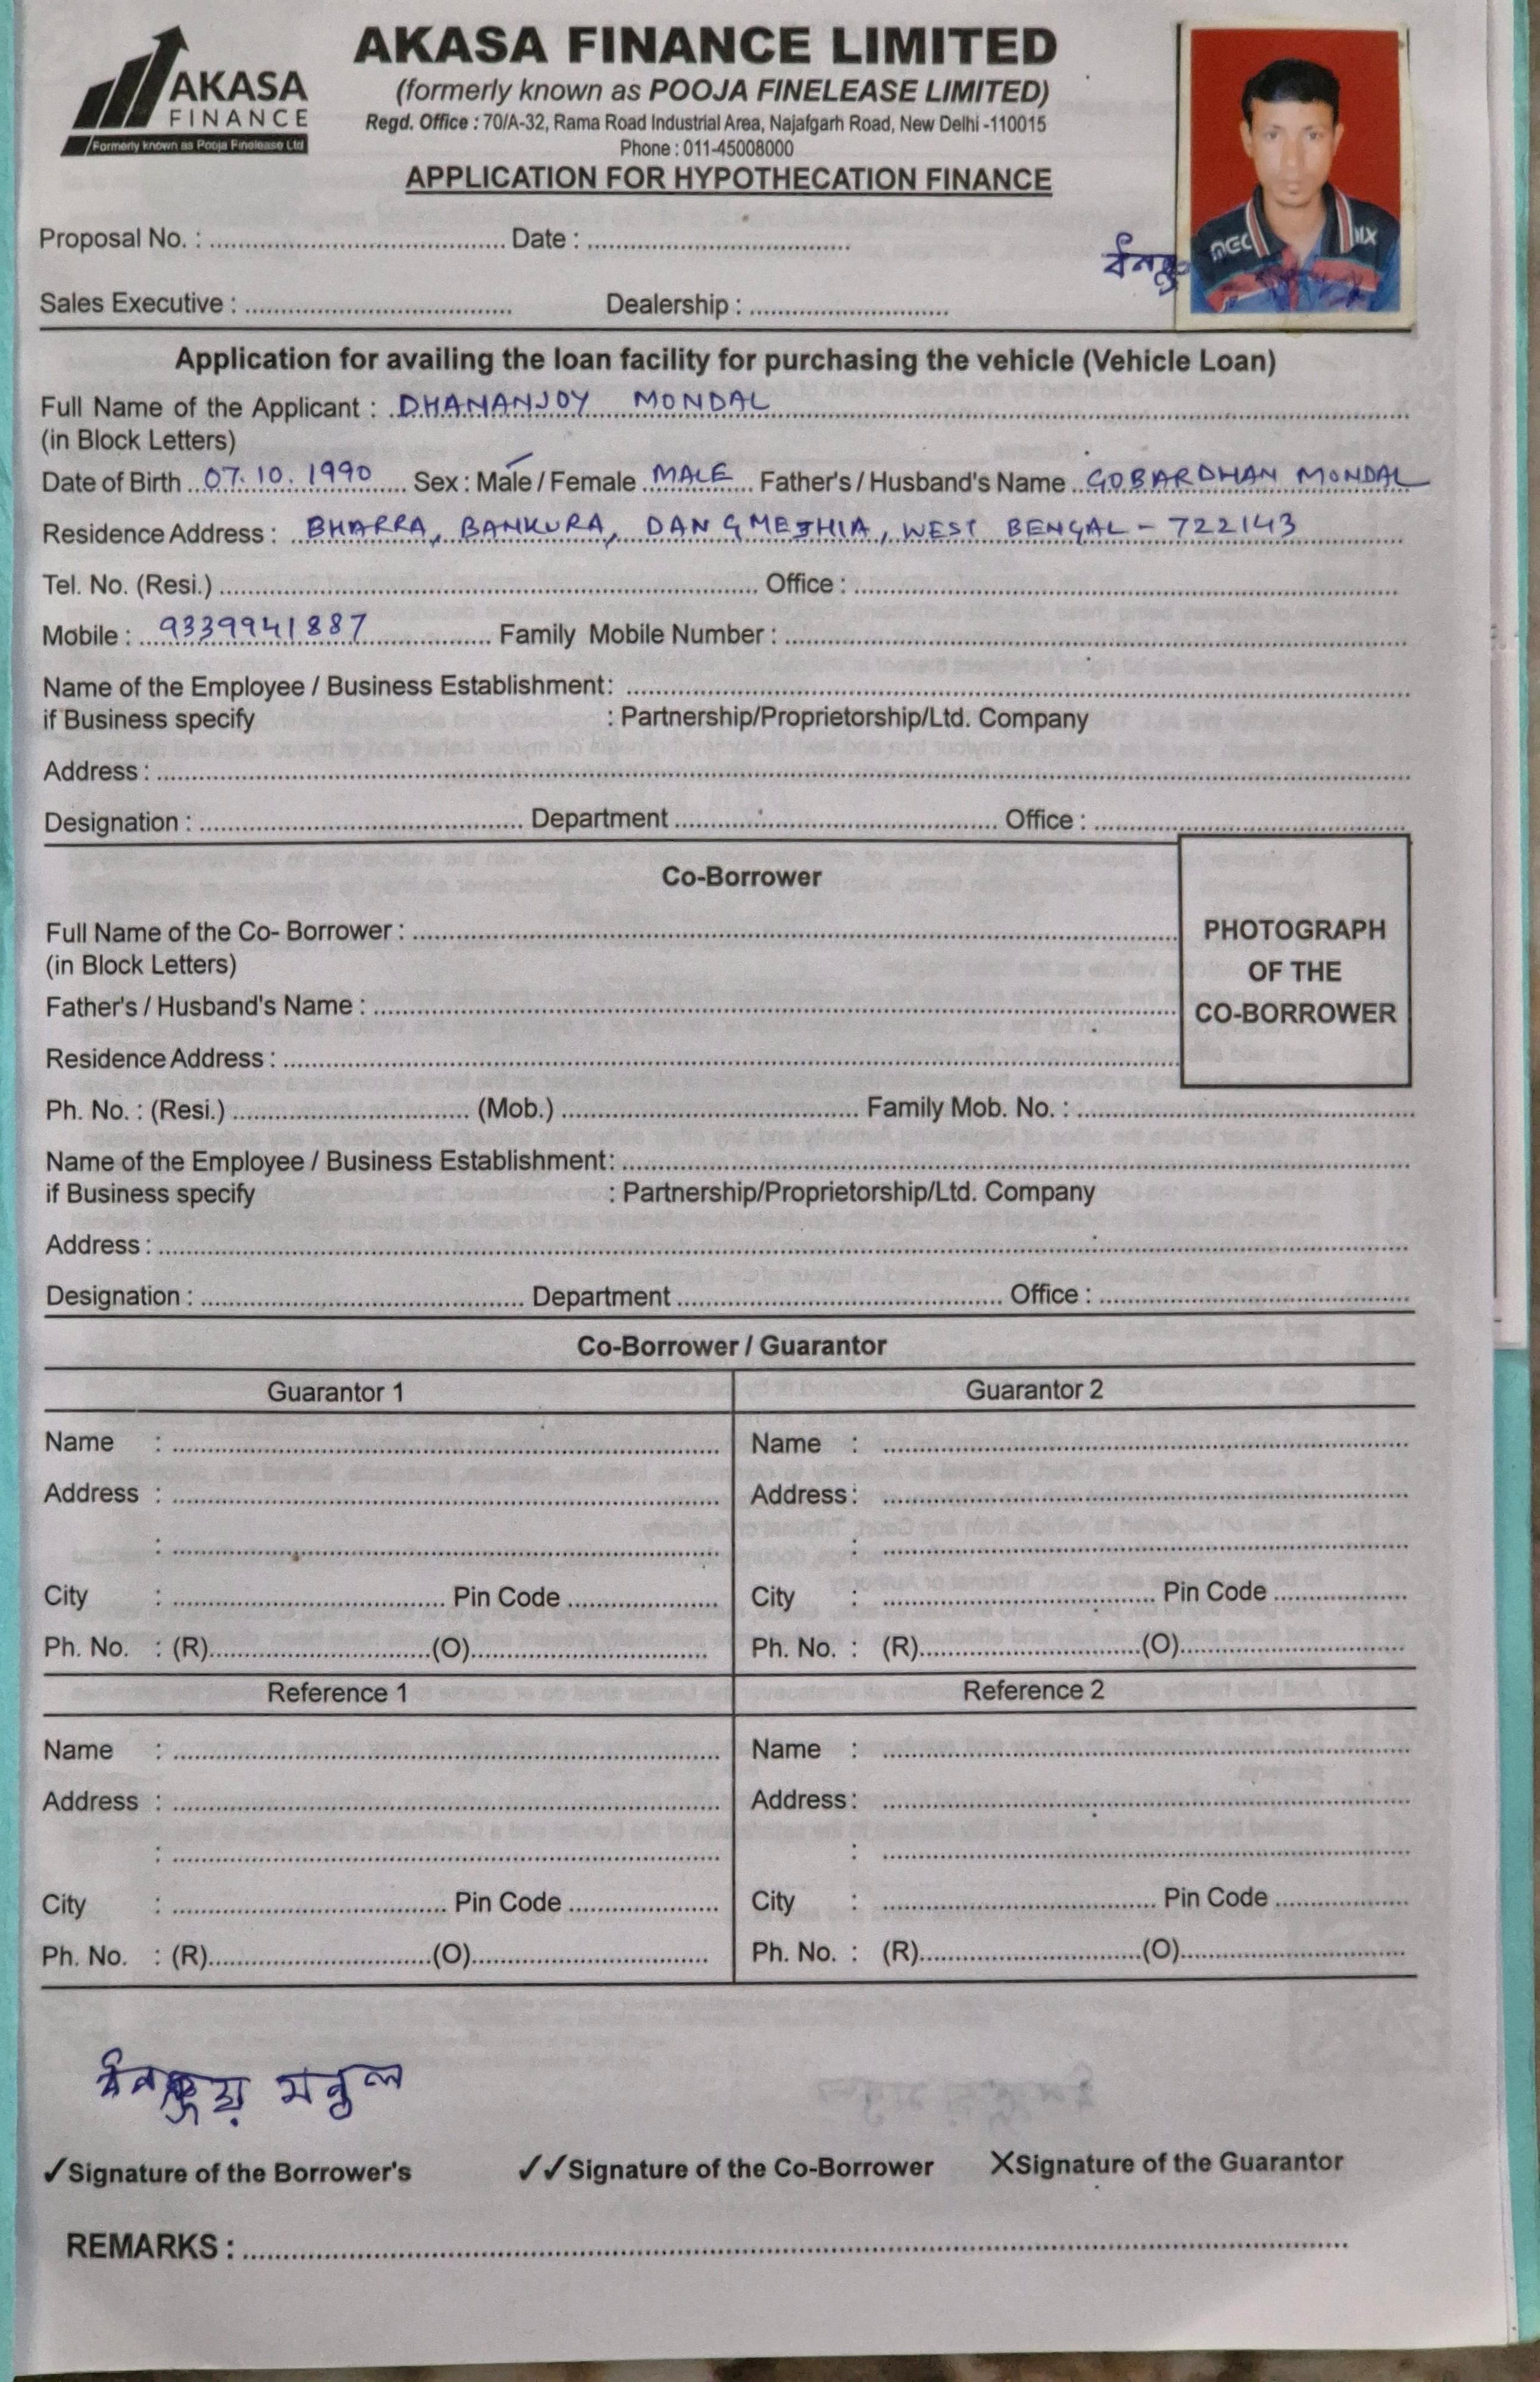 AKASA
FINANCE
Formerly known as Pooja Finelease Ltd
AKASA FINANCE LIMITED
(formerly known as POOJA FINELEASE LIMITED)
Regd. Office : 70/A-32, Rama Road Industrial Area, Najafgarh Road, New Delhi -110015
Phone : 011-45008000
APPLICATION FOR HYPOTHECATION FINANCE
MEC IIX
Proposal No. : Date :
Sales Executive : Dealership :
Application for availing the loan facility for purchasing the vehicle (Vehicle Loan)
Full Name of the Applicant : DHANANJOY MONDAL
(in Block Letters)
Date of Birth 07.10.1990 Sex : Male / Female MALE Father's / Husband's Name GOBARDHAN MONDAL
Residence Address : BHARRA, BANKURA, DANGMEJHIA, WEST BENGAL - 722143
Tel. No. (Resi.) Office :
Mobile : 9339941887 Family Mobile Number :
Name of the Employee / Business Establishment :
if Business specify : Partnership/Proprietorship/Ltd. Company
Address :
Designation : Department Office :
Co-Borrower
Full Name of the Co- Borrower :
(in Block Letters)
Father's / Husband's Name :
Residence Address :
PHOTOGRAPH
OF THE
CO-BORROWER
Ph. No. : (Resi.) (Mob.) Family Mob. No. :
Name of the Employee / Business Establishment :
if Business specify : Partnership/Proprietorship/Ltd. Company
Address :
Designation : Department Office :
Co-Borrower / Guarantor
Guarantor 1 Guarantor 2
Name : Name :
Address : Address :
: :
City : Pin Code City : Pin Code
Ph. No. : (R) (O) Ph. No. : (R) (O)
Reference 1 Reference 2
Name : Name :
Address : Address :
: :
City : Pin Code City : Pin Code
Ph. No. : (R) (O) Ph. No. : (R) (O)
ধনঞ্জয় মন্ডল
✓Signature of the Borrower's ✓✓Signature of the Co-Borrower XSignature of the Guarantor
REMARKS :